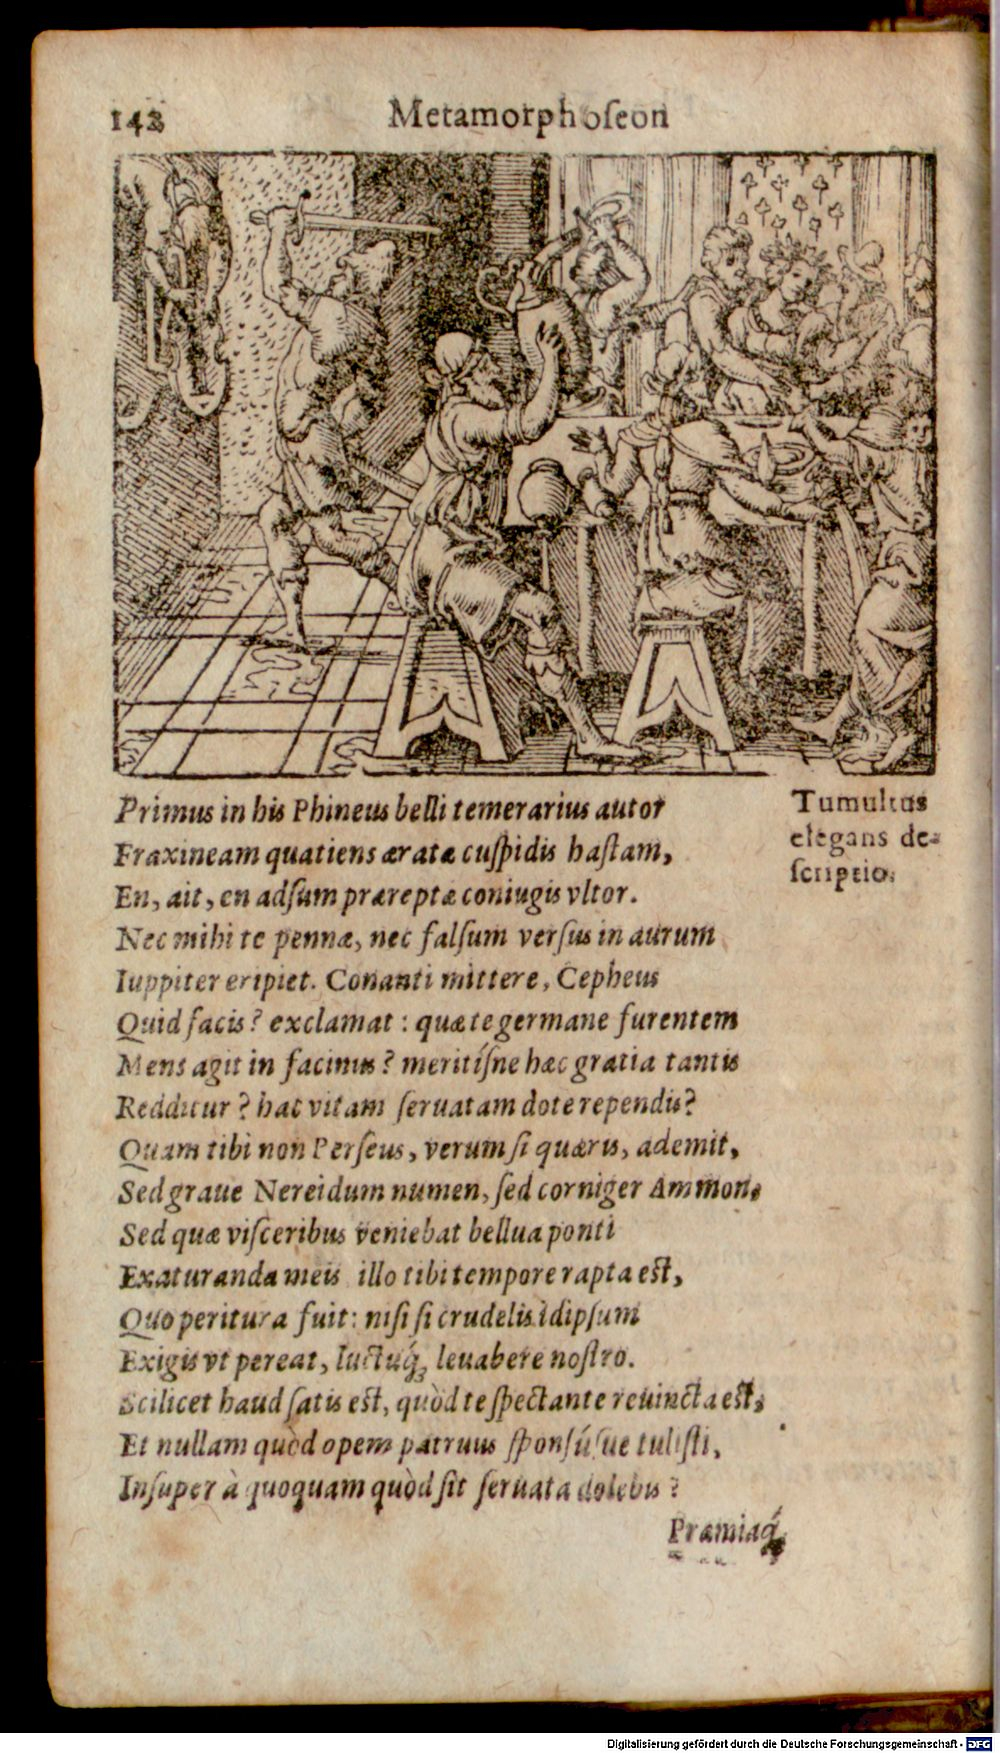 142
Metamorphoſeon
Primus in his Phineus belli temerarius autor
Fraxineam quatiens æratæ cuſpidis haſtam,
En, ait, en adſum præreptæ coniugis vltor.
Nec mihi te pennæ, nec falſum verſus in aurum
Iuppiter eripiet. Conanti mittere, Cepheus
Quid facis? exclamat: quæ te germane furentem
Mens agit in facinus? meritíſne hæc gratia tantis
Redditur? hac vitam ſeruatam dote rependis?
Quam tibi non Perſeus, verum ſi quæris, ademit,
Sed graue Nereidum numen, ſed corniger Ammon,
Sed quæ viſceribus veniebat bellua ponti
Exaturanda meis illo tibi tempore rapta eſt,
Quo peritura fuit: niſi ſi crudelis id ipſum
Exigis vt pereat, luctuq́; leuabere noſtro.
Scilicet haud ſatis eſt, quòd te ſpectante reuincta eſt,
Et nullam quòd opem patruus ſponſúſue tuliſti,
Inſuper à quoquam quòd ſit ſeruata dolebis?
Tumultus
elegans de-
ſcriptio.
Præmiaq́;
Digitalisierung gefördert durch die Deutsche Forschungsgemeinschaft - DFG